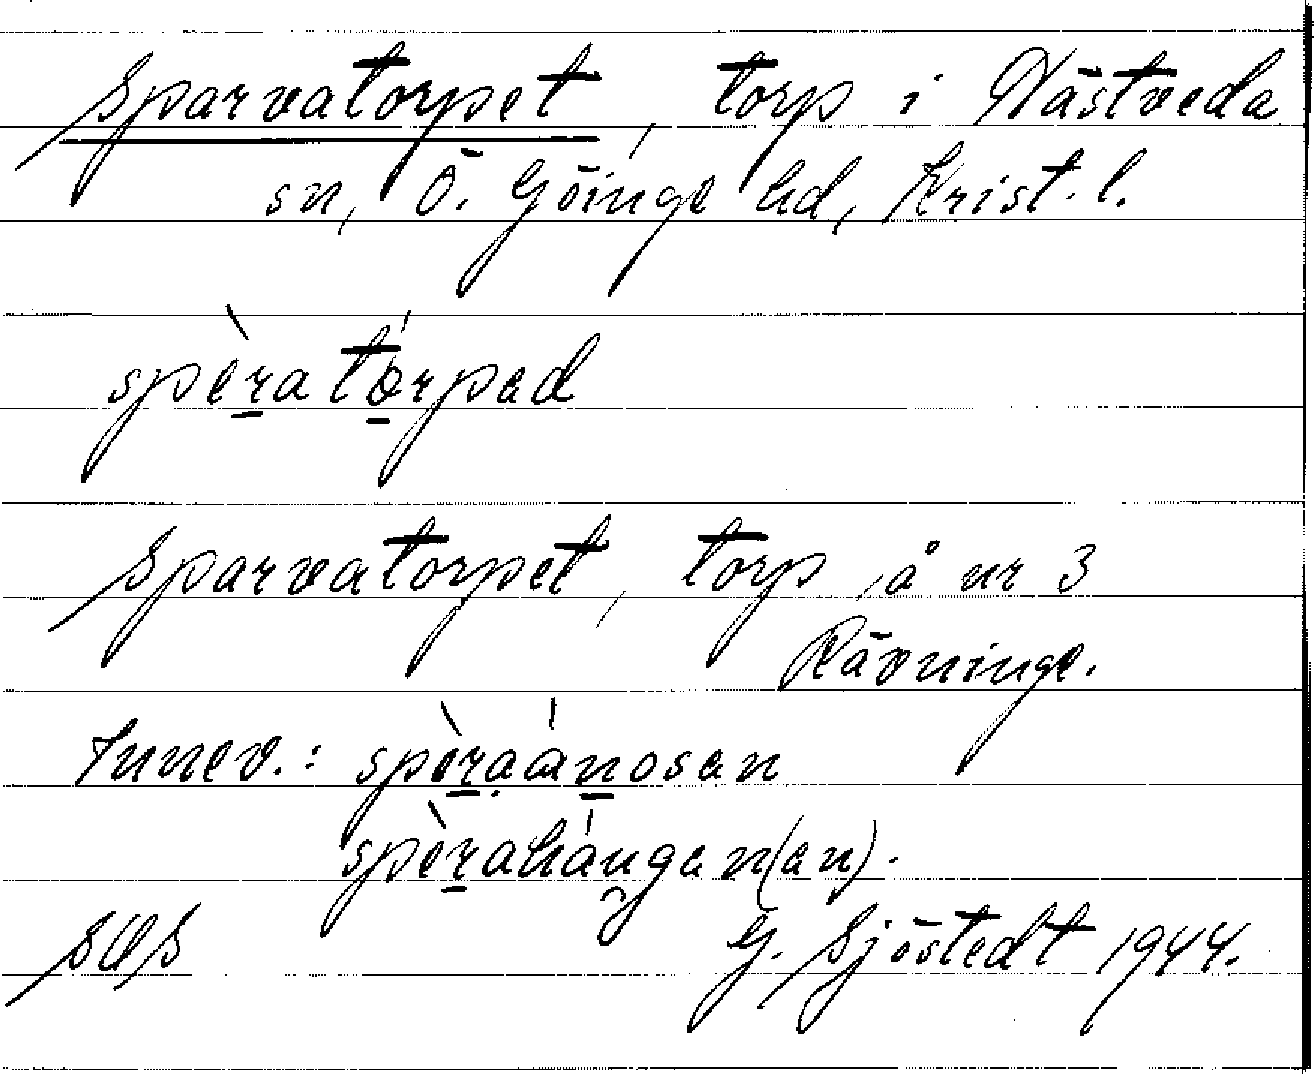 Sparvatorpet, torp i Nästveda
sn, Ö. Göinge hd, Krist. l.
spèratórped
Sparvatorpet, torp å nr 3
Rävninge.
Innev.: spèraánosen
spèrahángen(en).
G. Sjöstedt 1944.